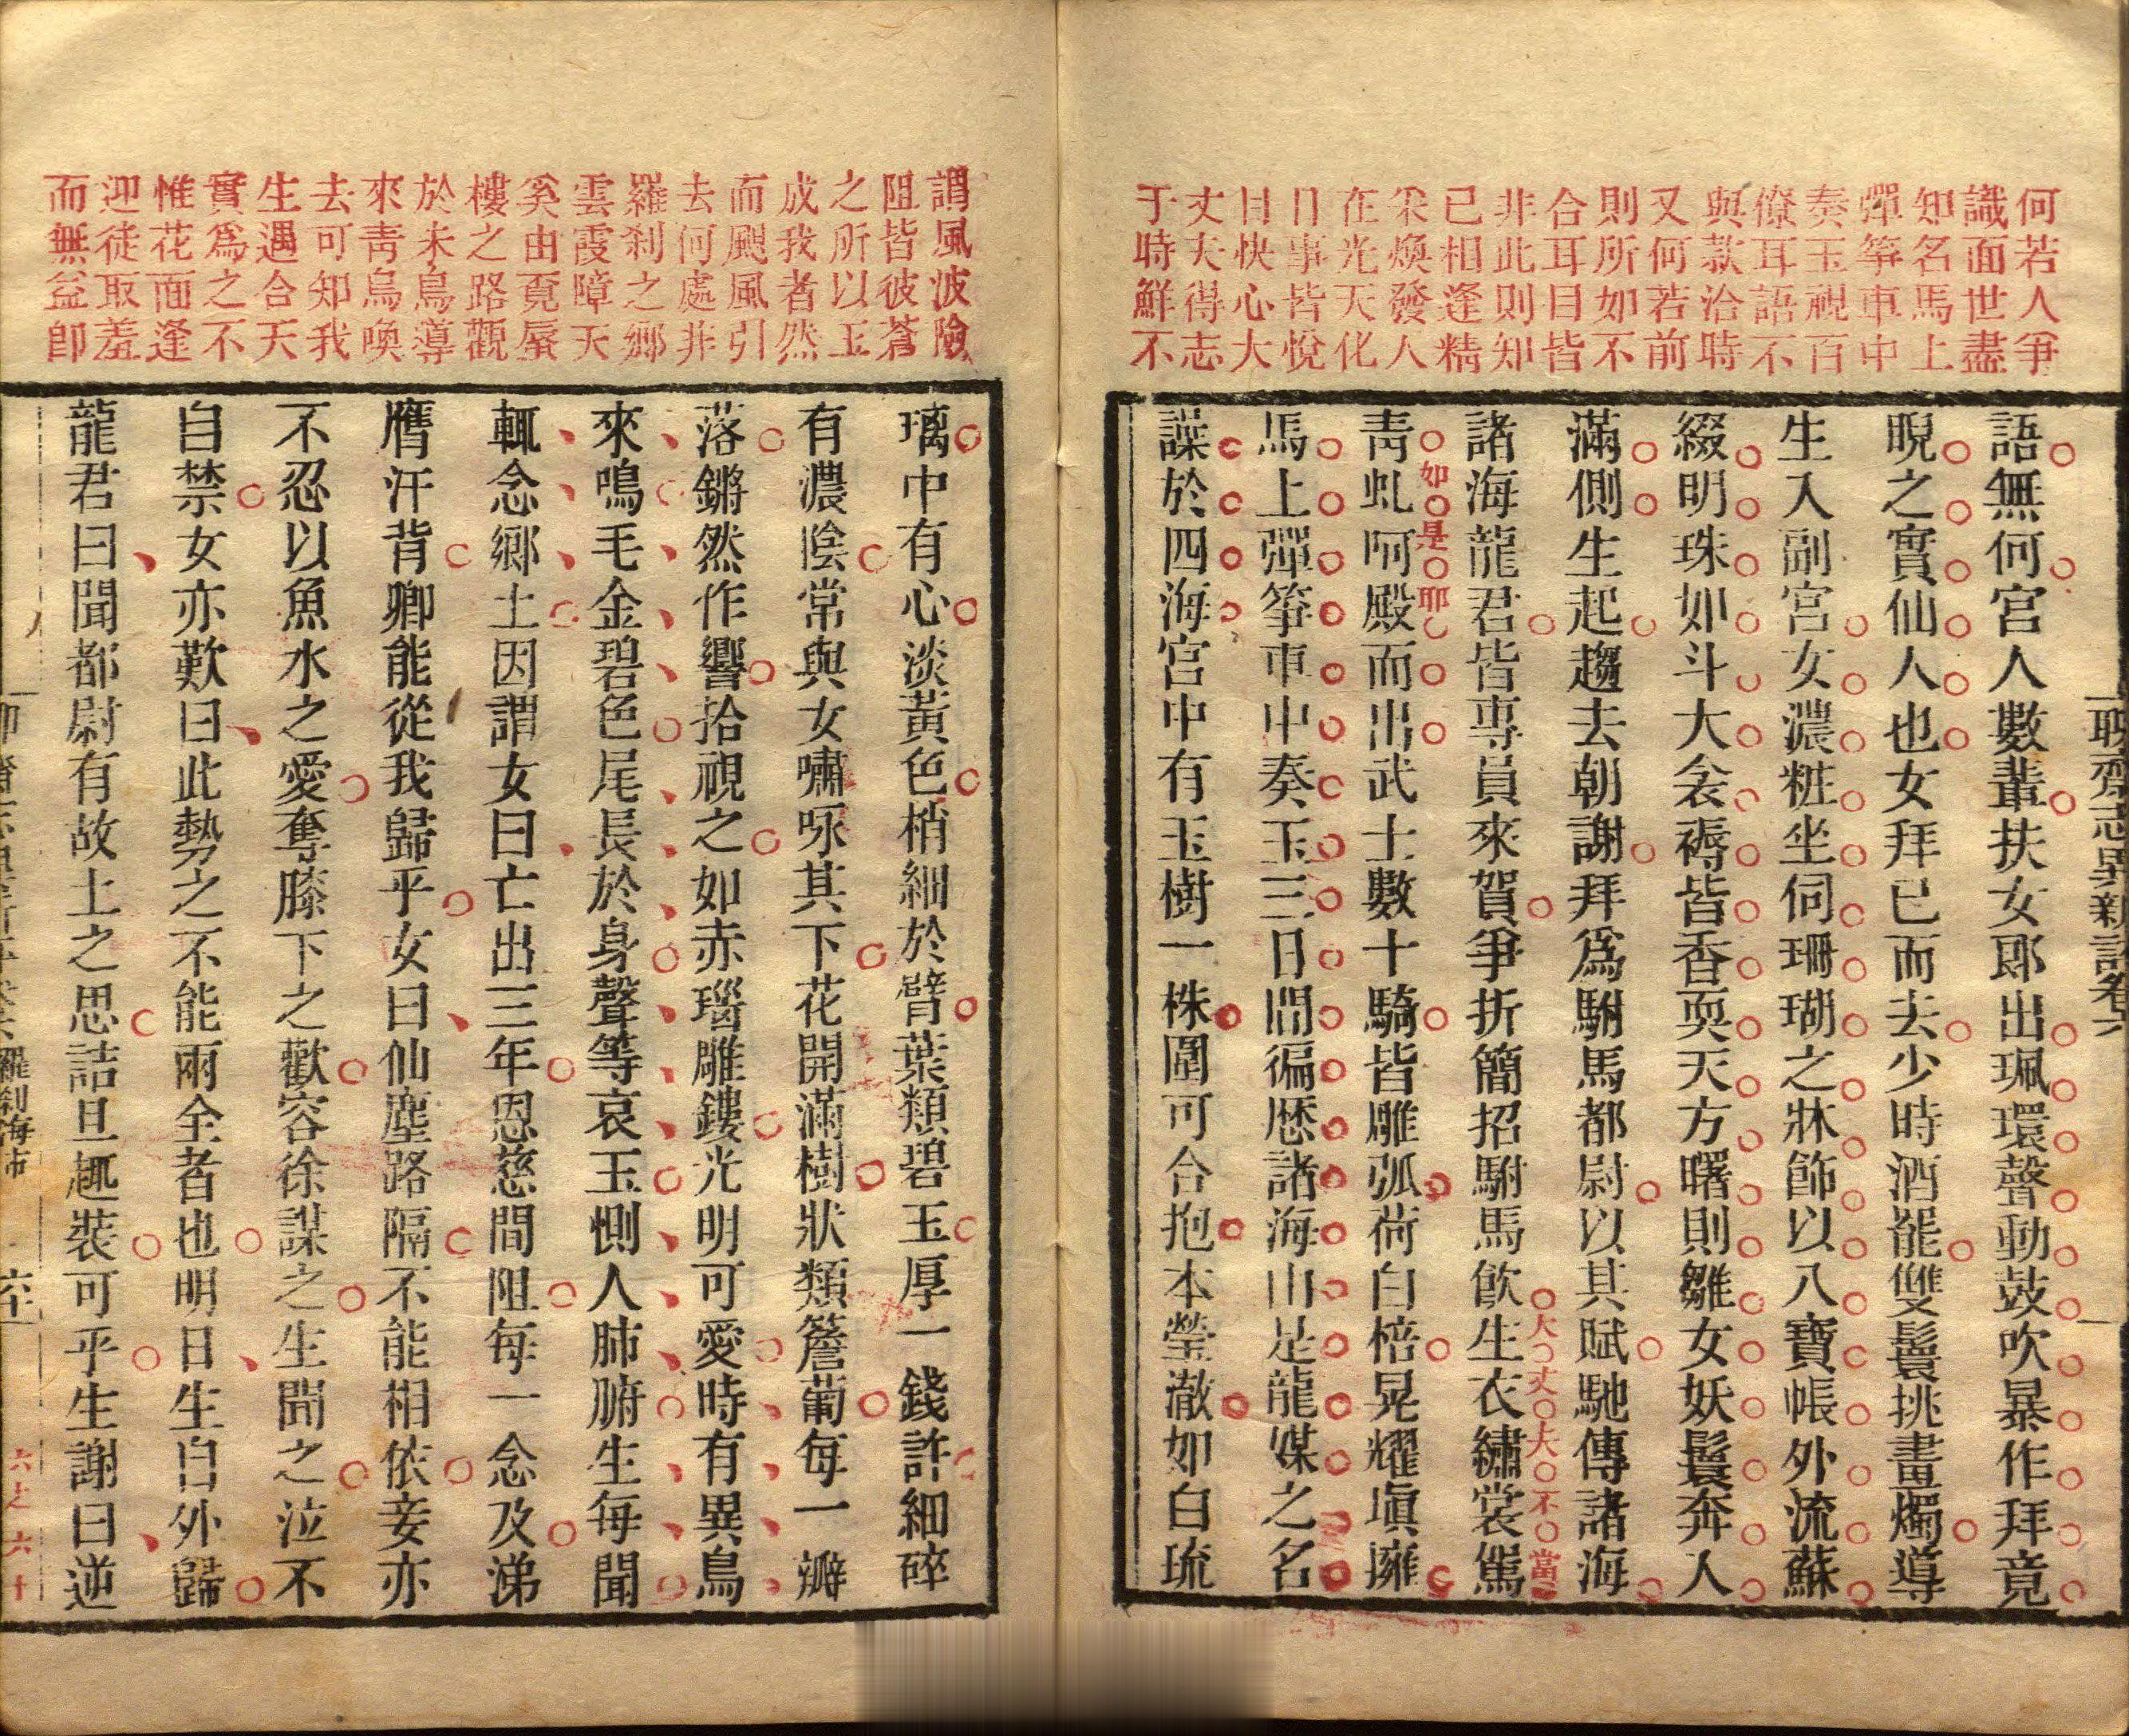 何若人爭
識面世盡
知名馬上
彈箏車中
奏玉視百
僚耳語不
與款洽時
又何若前
則所如不
合耳目皆
非此則知
已相逢精
采煥發人
在光天化
日事皆悅
目快心大
丈夫得志
于時鮮不
語無何宮人數輩扶女郎出珮環聲動鼓吹暴作拜竟
睨之實仙人也女拜已而去少時酒罷雙鬟挑畫燭導
生入副宮女濃粧坐伺珊瑚之牀飾以八寶帳外流蘇
綴明珠如斗大衾褥皆香耎天方曙則雛女妖鬟奔入
滿側生起趨去朝謝拜爲駙馬都尉以其賦馳傳諸海
諸海龍君皆専員來賀爭折簡招駙馬飮生衣繡裳駕
大丈夫不當
青虬呵殿而出武士數十騎皆雕弧荷白棓晃耀塡擁
如是耶
馬上彈箏車中奏玉三日間徧歷諸海由是龍媒之名
譟於四海宮中有玉樹一株圍可合抱本瑩澈如白琉
聊齋志異新評卷六
謂風波險
阻皆彼蒼
之所以玉
成我者然
而颶風引
去何處非
羅刹之鄉
雲霞障天
奚由覔蜃
樓之路觀
於朱鳥導
來靑鳥喚
去可知我
生遇合天
實爲之不
惟花面逢
迎徒取羞
而無益卽
璃中有心淡黃色梢細於臂葉類碧玉厚一錢許細碎
有濃陰常與女嘯咏其下花開滿樹狀類簷蔔每一瓣
落鏘然作響拾視之如赤瑙雕鏤光明可愛時有異鳥
來鳴毛金碧色尾長於身聲等哀玉惻人肺腑生每聞
輒念鄉土因謂女曰亡出三年恩慈間阻每一念及涕
膺汗背卿能從我歸乎女曰仙塵路隔不能相依妾亦
不忍以魚水之愛奪膝下之歡容徐謀之生聞之泣不
自禁女亦歎曰此勢之不能兩全者也明日生自外歸
龍君曰聞都尉有故土之思詰旦趣裝可乎生謝曰逆
羅刹海市
六十
六之六十